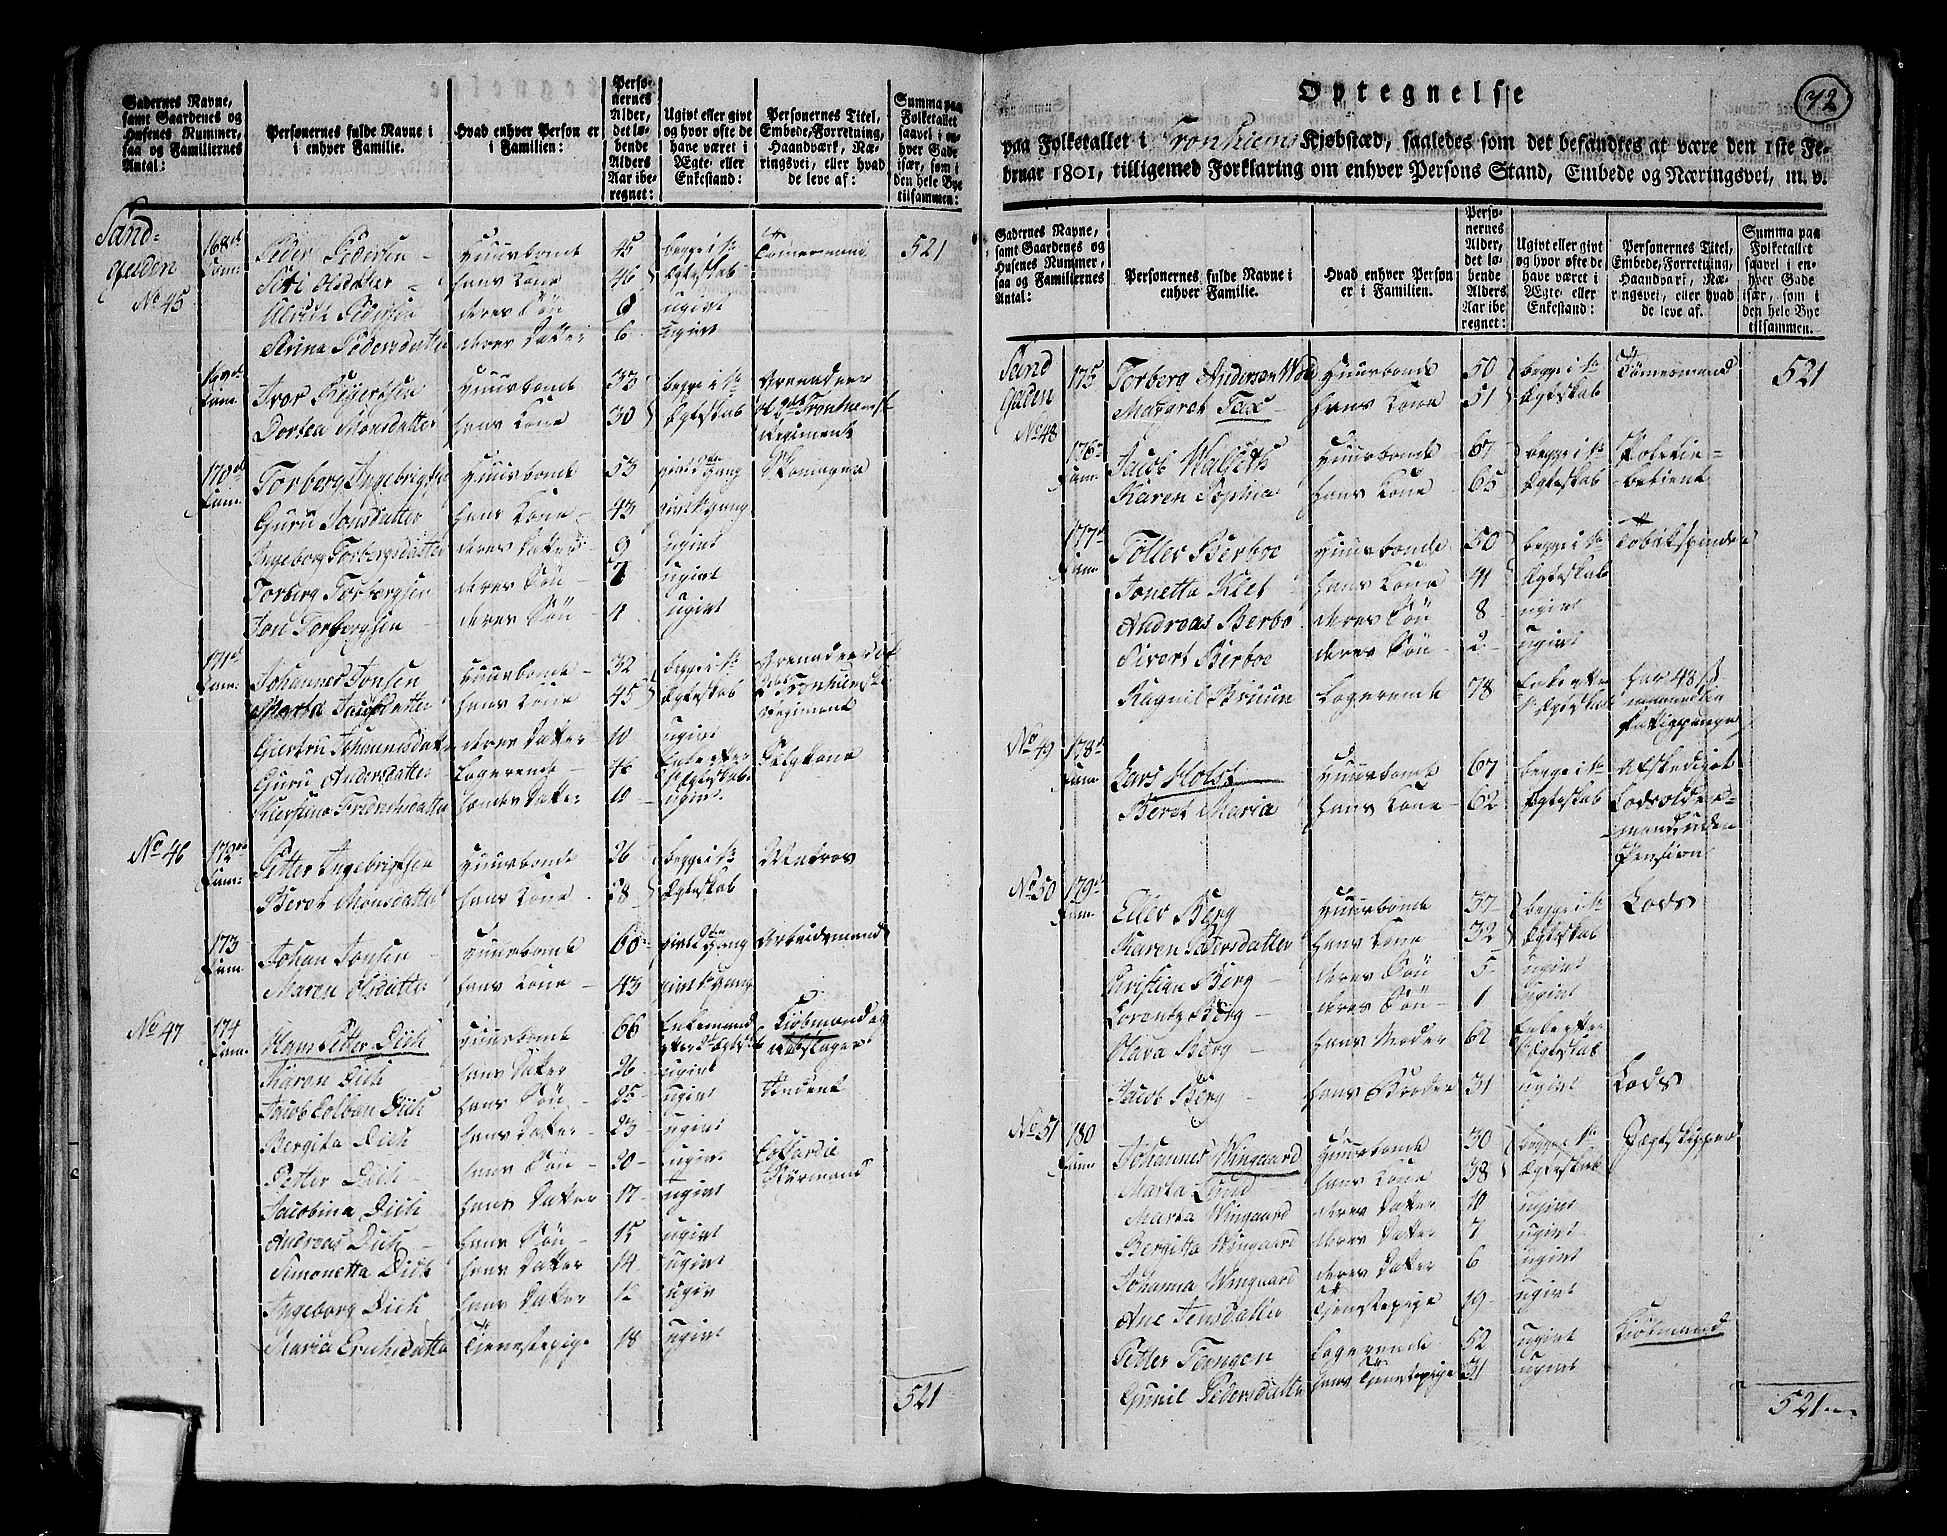 Gadernes Navne, samt Gaardenes og Husenes Nummer, saa og Familiernes Antal:
Personernes fulde Navne i enhver Familie.
Hvad enhver Person er i Familien:
Personernes Alder, det løbende Alders Aar iberegnet:
Ugivt eller givt og hvor ofte de have været i Ægte- eller Enkestand:
Personernes Titel, Embede, Forretning, Haandværk, Næringsvei, eller hvad de leve af:
Summa paa Folketallet saavel i enhver Gade især, som i den hele Bye tilsammen:
Sand-
gaden
No 45
168de Fam: Peder Pedersen - Huusbonde 45 begge i 1te Tømermand 521
Siri Olsdatter - hans Kone 46 Ægteskab
Ulrich Pedersen deres Søn 8 ugivt
Serina Pedersdatter deres Datter 6 ugivt
169de Fam: Ivor Huusbonde 33 begge i 1te Grenadeer
Dortea Monsdatter hans Kone 30 Ægteskab ved 2det Tronhiemske
Regiment
170de Fam: Torberg Ingebrigtsen Huusbonde 53 givt 2den Gang
Guru Jonsdatter hans Kone - 43 givt 1te gang
Ingeborg Torbergsdatter deres Datter 9 ugivt
Torberg Torbergsen deres Søn - 7 ugivt
Jon Torbergsen - deres Søn - 4 ugivt
171de Fam: Johannes Jonsen Huusbonde - 32 begge i 1te Grenadeer ved
Marta hans Kone - 45 Ægteskab Tronhiemske
Regiment
Giertru Johannisdatter deres Datter 10 ugivt
Guru Andersdatter Logerende - 46 Enke efter
1te Ægteskab
Kiersti hendes Datter 10 - ugivt.
No 46 172de Fam: Petter Ingebrigtsen Huusbonde 26 begge i 1te Matros
Beret Monsdatter hans Kone 28 Ægteskab
173 Fam: Johan Jonsen - Huusbonde 60 givt 2den Gang Arbeidsmand
Maren Olsdatter hans Kone - 43 givt 1te gang
No 47 174 Fam: Hans Petter Dich Huusbonde 66 Enkemand Kiøbmand og
efter 2det Ægtesk
Karen Dich hans Datter 26 ugivt
Jacob Colban Dich hans Søn - 25 ugivt Student
Bergita Dich hans Datter - 23 ugivt
Petter Dich - hans Søn - 20 ugivt Cofardie
Styrmand
Jacobina Dich hans Datter 17 ugivt
Andreas Dich - hans Søn - 15 ugivt
Simonetta Dich hans Datter 14 ugivt
Ingeborg Dich hans Datter 12 ugivt
Maria Erichsdatter Tienestepige 18 ugivt
521
72
Optegnelse
paa Folketallet i Tronhiems Kjøbstæd, saaledes som det befandtes at være den 1ste Februar 1801, tilligemed Forklaring om enhver Persons Stand, Embede og Næringsvei, m. v.
Gadernes Navne, samt Gaardenes og Husenes Nummer, saa og Familiernes Antal:
Personernes fulde Navne i enhver Familie.
Hvad enhver Person er i Familien.
Personernes Alder, det løbende Alders Aar iberegnet:
Ugivt eller givt og hvor ofte de have været i Ægte- eller Enkestand:
Personernes Titel, Embede, Forretning, Haandværk, Næringsvei, eller hvad de leve af.
Summa paa Folketallet saavel i enhver Gade især, som i den hele Bye tilsammen.
Sand
Gaden
No 48
175 Torberg Anderson Huusbonde 50 begge i 1te Tømermand 521
Margret Fax - hans Kone 51 Ægteskab
176 Fam: Jacob Huusbonde 67 begge i 1te Politie-
Karen Sophia hans Kone - 65 Ægteskab - betient
177de Fam: Toller Berboe Huusbonde 50 begge i 1te Tobakspinder
Jonetta Klet hans Kone 41 Ægteskab
Andreas Berbo deres Søn 8 - ugivt
Sivert Berboe deres Søn - 2 - ugivt
Ragnil Bruun Logerende 78 Enke efter har 48 ß
1te Ægteskab
No 49 178de Fam: Lars Holst Huusbonde 67 begge i 1te Afskediget
Beret Maria hans Kone - 62 Ægteskab Lodsolder-
mand, uden
Pension
No 50 179de Fam: Eiler Berg Huusbonde 37 begge i 1te Lods
Karen Pedersdatter hans Kone 32 Ægteskab
Christian Berg - deres Søn - 5 - ugivt
Lorentz Berg - deres Søn - 1 ugivt
Olava Berg - hans Moder 62 Enke efter
1te Ægteskab
Jacob Berg - hans Broder 31 ugivt Lods
No 51 180 Fam: Johannes Wingaard Huusbonde 30 begge i 1te Jægtskipper
Marta Lund hans Kone 38 Ægteskab
Marta Wingaard deres Datter 10 ugivt
Bergitta Wingaard deres Datter 7 ugivt
Johanna Wingaard deres Datter 6 ugivt
Ane Jensdatter Tienestepige 19 - ugivt
Petter Logerende 52 ugivt Kiøbmand
Gunil Pedersdatter hans Tienestepige 31 ugivt
521